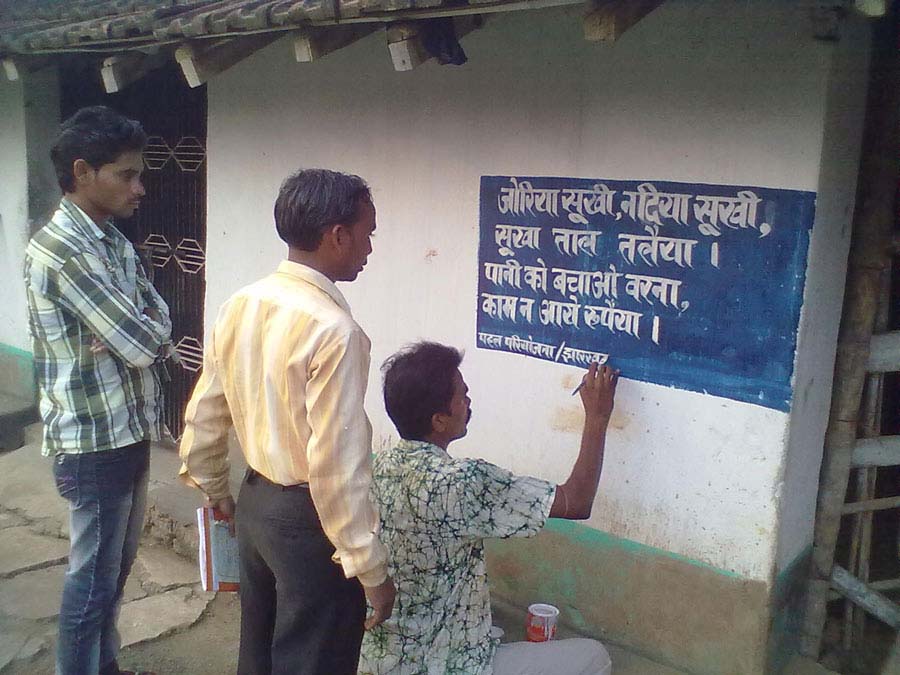 जोरिया सूखी, नदिया सूखी,
सूखा ताल तलैया ।
पानी को बचाओ वरना,
काम न आये रुपैया ।
पहल परियोजना/झारखण्ड